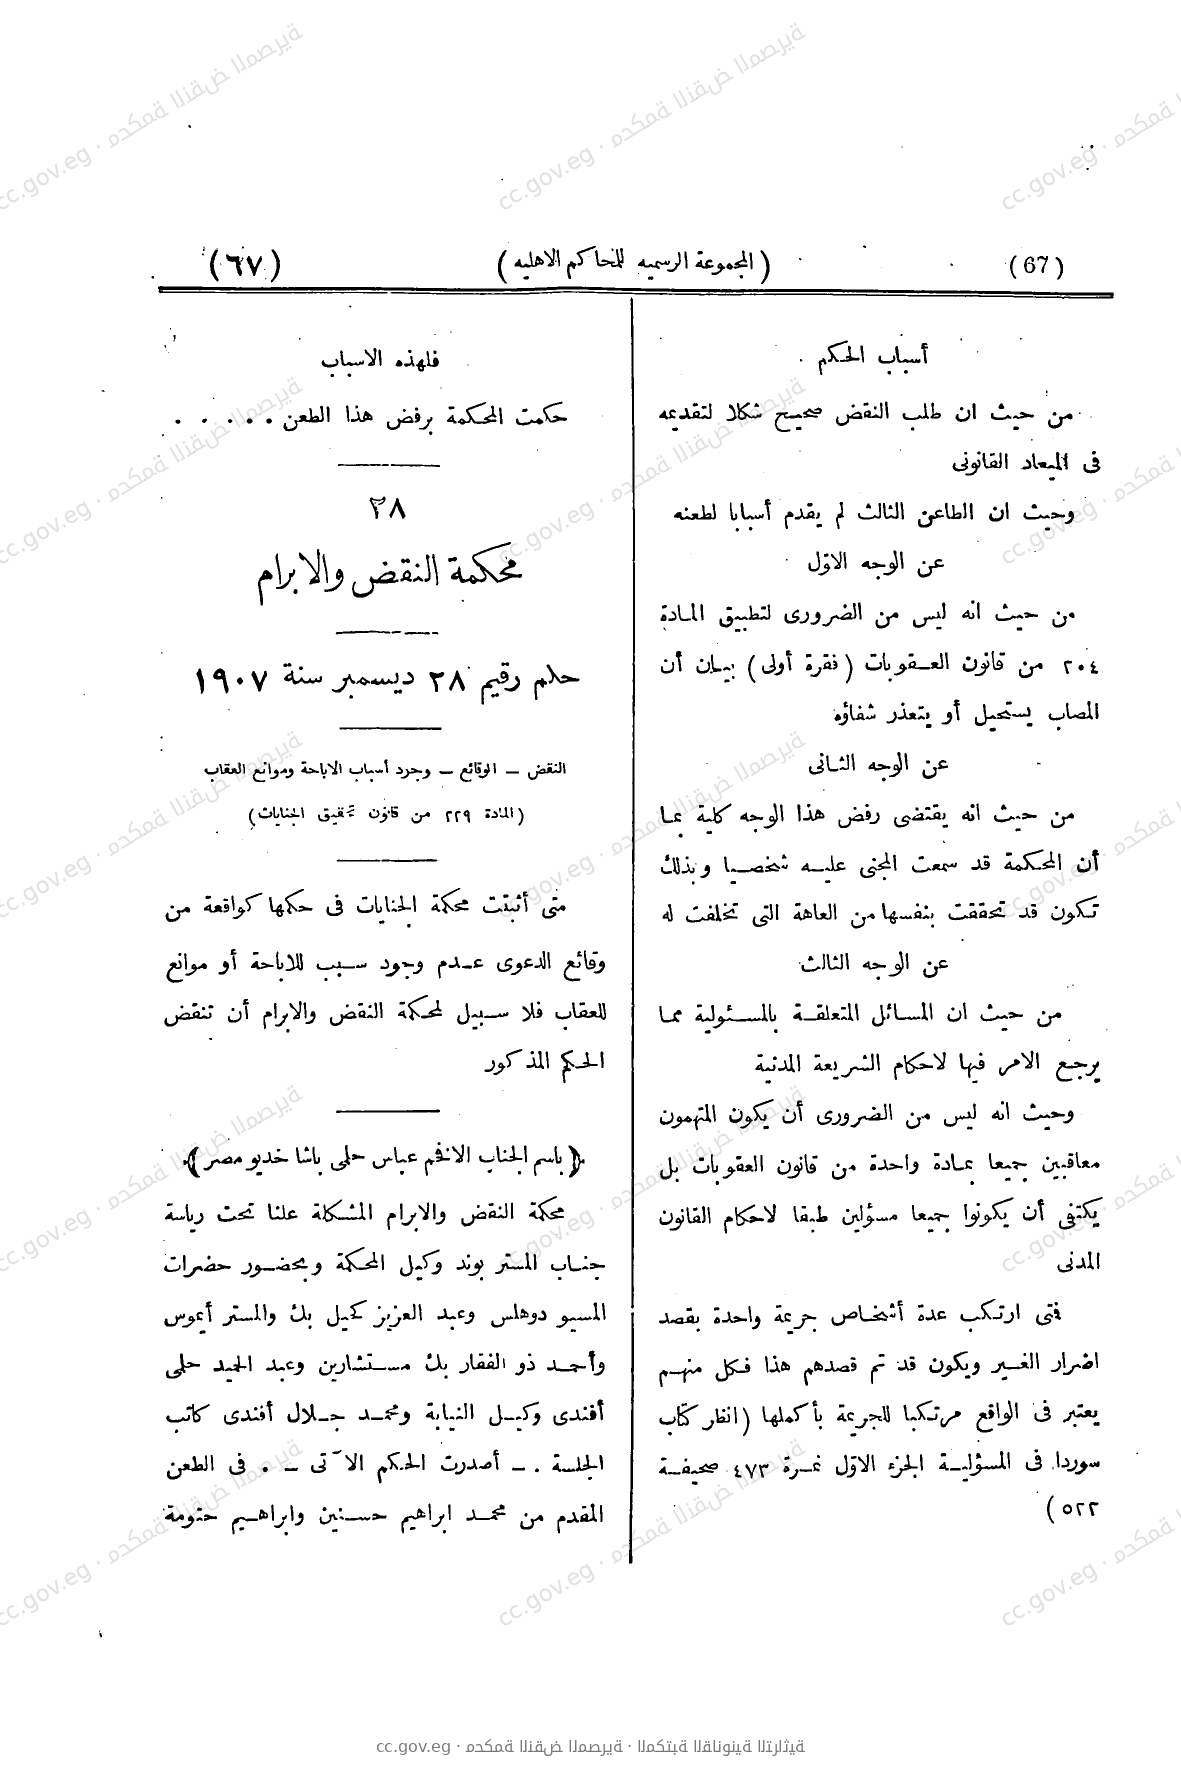 (67)
(المجموعة الرسميه للمحاكم الاهليه)
(٦٧)
أسباب الحكم
من حيث ان طلب النقض صحيح شكلا لتقديمه
فى الميعاد القانونى
وحيث ان الطاعن الثالث لم يقدم أسبابا لطعنه
عن الوجه الاوّل
من حيث انه ليس من الضرورى لتطبيق المادة
٢٠٤ من قانون العقوبات (فقرة أولى) بيان أن
المصاب يستحيل أو يتعذر شفاؤه
عن الوجه الثانى
من حيث انه يقتضى رفض هذا الوجه كلية بما
أن المحكمة قد سمعت المجنى عليه شخصيا وبذلك
تكون قد تحققت بنفسها من العاهة التى تخلفت له
عن الوجه الثالث
من حيث ان المسائل المتعلقة بالمسئولية مما
يرجع الامر فيها لاحكام الشريعة المدنية
وحيث انه ليس من الضرورى أن يكون المتهمون
معاقبين جميعا بمادة واحدة من قانون العقوبات بل
يكتفى أن يكونوا جميعا مسؤلين طبقا لاحكام القانون
المدنى
فتى ارتكب عدة أشخاص جريمة واحدة بقصد
اضرار الغير ويكون قد تم قصدهم هذا فكل منهم
يعتبر فى الواقع مرتكبا للجريمة بأكملها (انظر كتاب
سوردا فى المسؤلية الجزء الاوّل نمرة ٤٧٣ صحيفة
٥٢٢)
فلهذه الاسباب
حكمت المحكمة برفض هذا الطعن . . . . .
٢٨
محكمة النقض والابرام
حكم رقيم ٢٨ ديسمبر سنة ١٩٠٧
النقض – الوقائع – وجود أسباب الاباحة وموانع العقاب
(المادة ٢٢٩ من قانون تحقيق الجنايات)
متى أثبتت محكمة الجنايات فى حكمها كواقعة من
وقائع الدعوى عدم وجود سبب للاباحة أو موانع
للعقاب فلا سبيل لمحكمة النقض والابرام أن تنقض
الحكم المذكور
(باسم الجناب الافخم عباس حلمى باشا خديو مصر)
محكمة النقض والابرام المشكلة علنا تحت رياسة
جناب المستر بوند وكيل المحكمة وبحضور حضرات
المسيو دوهلس وعبد العزيز كحيل بك والمستر أيموس
وأحمد ذو الفقار بك مستشارين وعبد الحميد حلمى
أفندى وكيل النيابة ومحمد جلال أفندى كاتب
الجلسة . – أصدرت الحكم الآتى – . فى الطعن
المقدم من محمد ابراهيم حسنين وابراهيم حتومة
cc.gov.eg · محكمة النقض المصرية · المكتبة القانونية التراثية